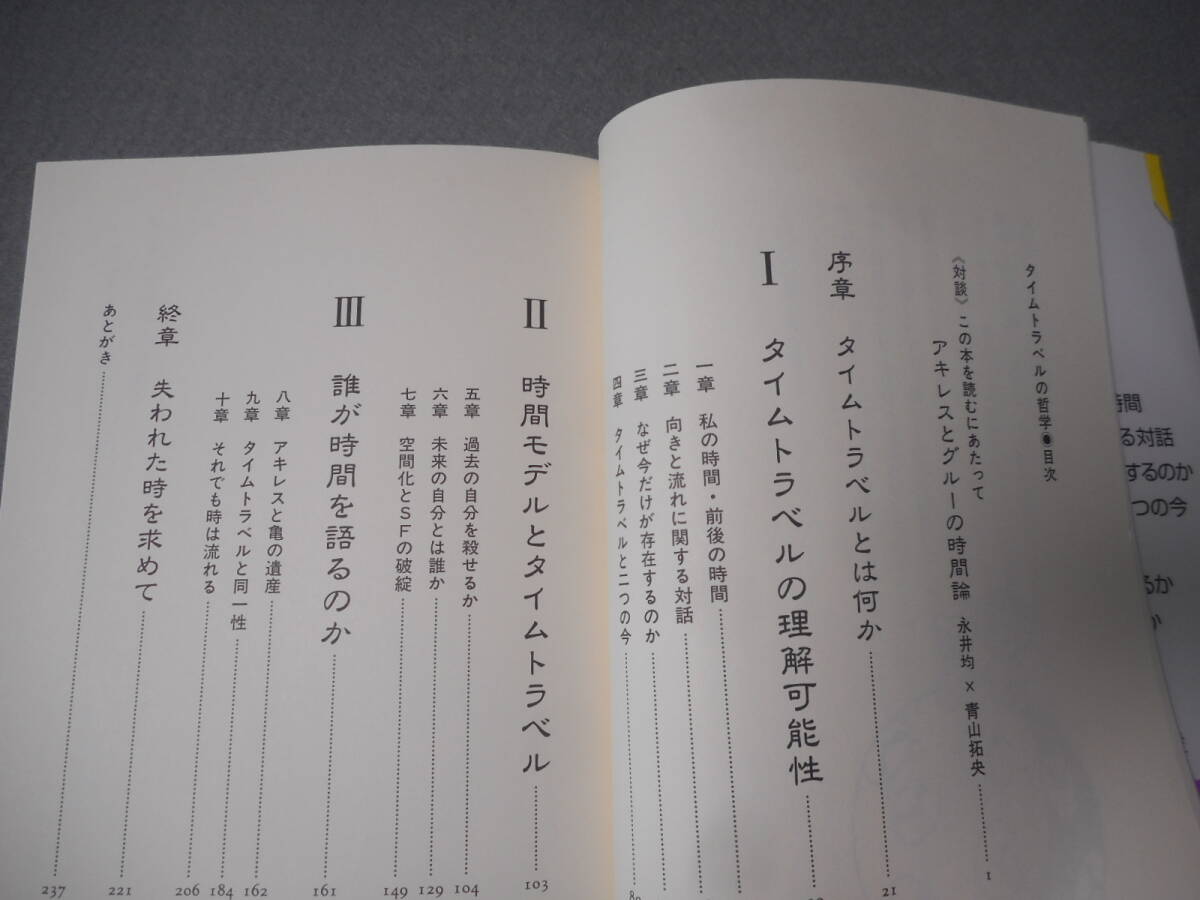 タイムトラベルの哲学●目次
《対談》この本を読むにあたって
アキレスとグルーの時間論 永井均×青山拓央 1
序章 タイムトラベルとは何か 21
I タイムトラベルの理解可能性
一章 私の時間・前後の時間
二章 向きと流れに関する対話
三章 なぜ今だけが存在するのか
四章 タイムトラベルと二つの今
II 時間モデルとタイムトラベル 103
五章 過去の自分を殺せるか 104
六章 未来の自分とは誰か 129
七章 空間化とSFの破綻 149
III 誰が時間を語るのか 161
八章 アキレスと亀の遺産 162
九章 タイムトラベルと同一性 184
十章 それでも時は流れる 206
終章 失われた時を求めて 221
あとがき 237
時間
る対話
するのか
つの今
るか
か